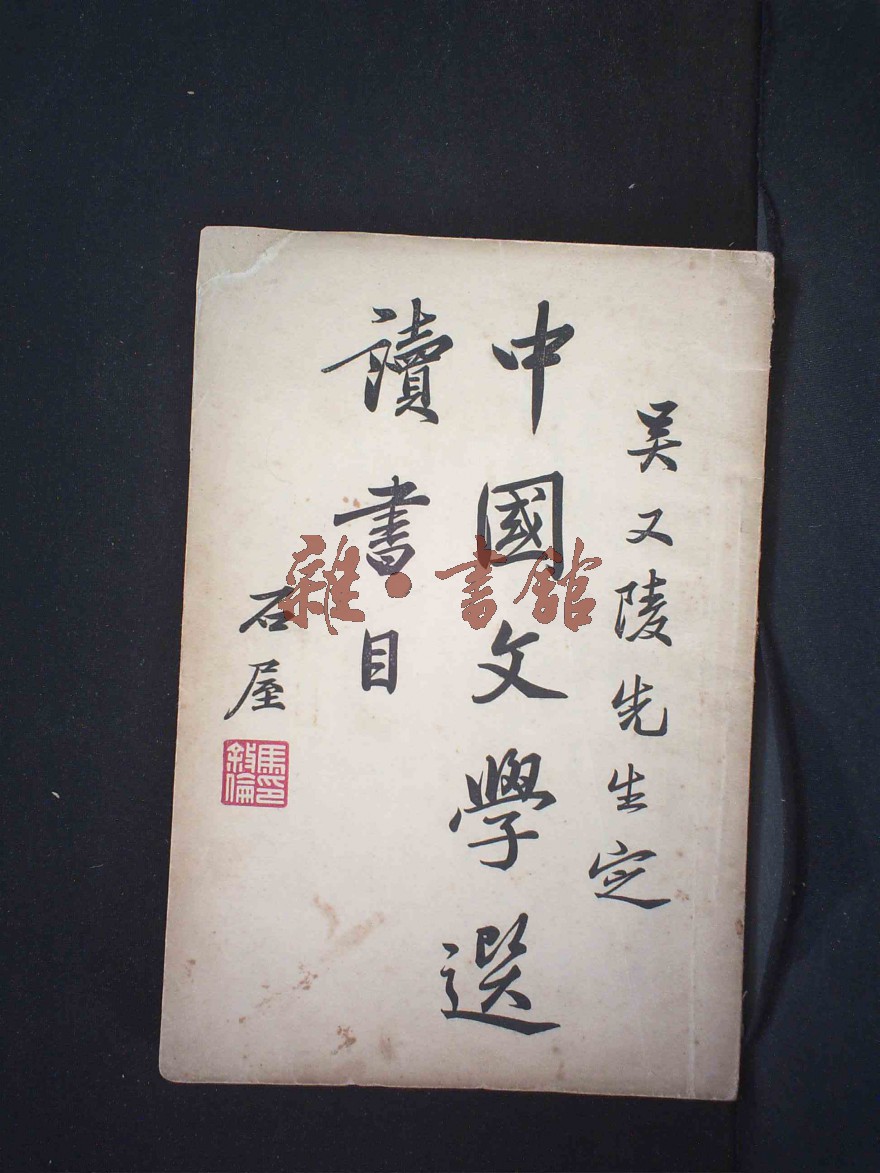 吴又陵先生定
中國文學選
讀書目
石屋
馬敘倫印
雜·書館